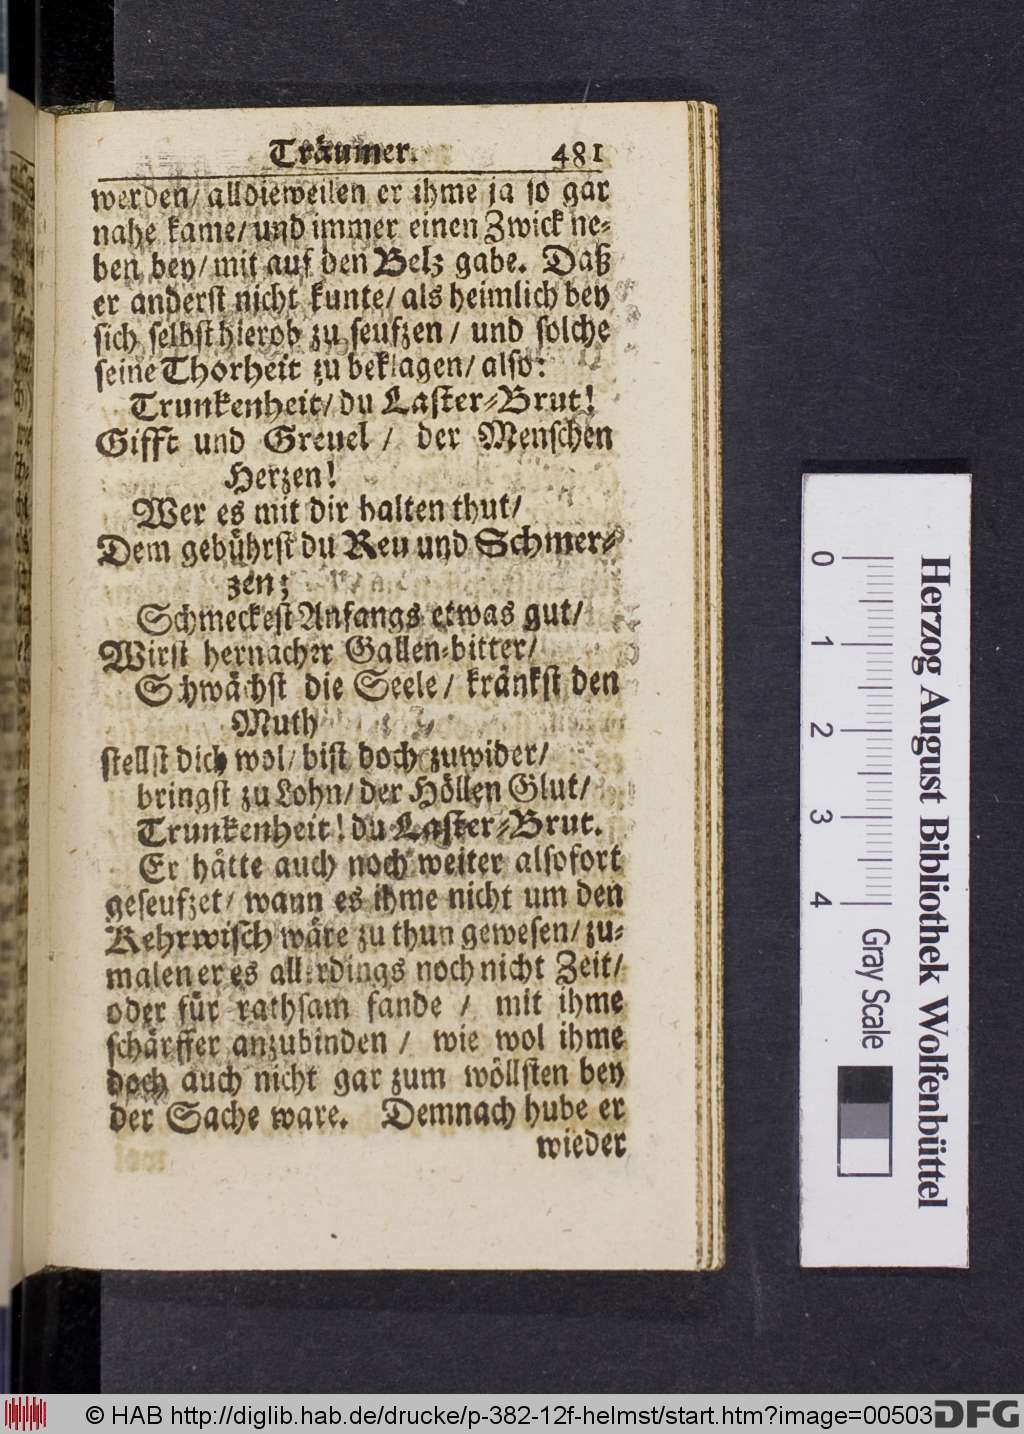 Träumer. 481
werden/ alldieweilen er ihme ja so gar
nahe kame/ und immer einen Zwick ne-
ben bey/ mit auf den Belz gabe. Daß
er anderst nicht kunte/ als heimlich bey
sich selbst hierob zu seufzen/ und solche
seine Thorheit zu beklagen/ also:
Trunkenheit/ du Laster-Brut!
Gifft und Greuel / der Menschen
Herzen!
Wer es mit dir halten thut/
Dem gebührst du Reu und Schmer-
zen;
Schmeckest Anfangs etwas gut/
Wirst hernacher Gallen-bitter/
Schwächst die Seele/ kränkst den
Muth
stellst dich wol/ bist doch zuwider/
bringst zu Lohn/ der Höllen Glut/
Trunkenheit! du Laster-Brut.
Er hätte auch noch weiter alsofort
geseufzet/ wann es ihme nicht um den
Kehrwisch wäre zu thun gewesen/ zu-
malen er es allerdings noch nicht Zeit/
oder für rathsam fande / mit ihme
schärffer anzubinden / wie wol ihme
doch auch nicht gar zum wöllsten bey
der Sache ware. Demnach hube er
wieder
0 1 2 3 4
Gray Scale
Herzog August Bibliothek Wolfenbüttel
© HAB http://diglib.hab.de/drucke/p-382-12f-helmst/start.htm?image=00503
DFG